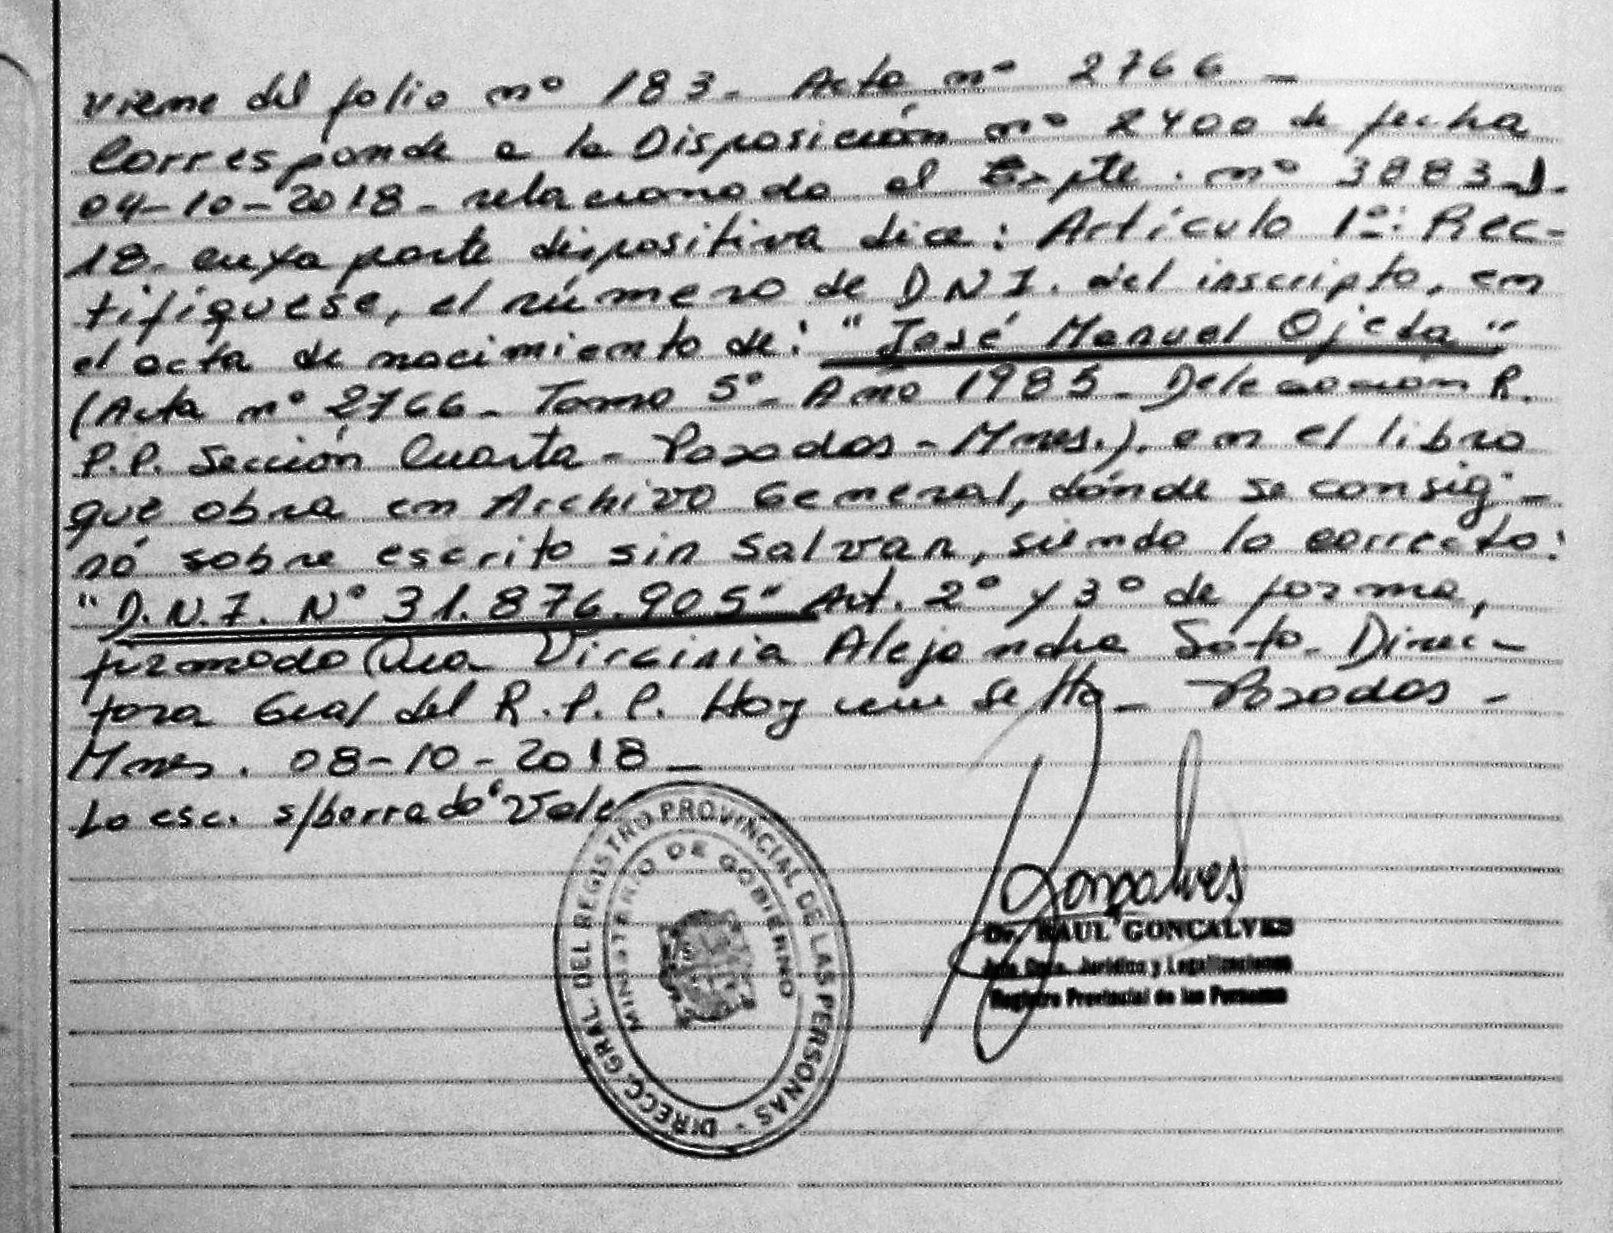 Viene del folio nº 183_ Acta nº 2766_
Corresponde a la Disposición nº 2400 de fecha
04-10-2018_ relacionado al Expte. nº 3883-J-
18_ cuya parte dispositiva dice: Artículo 1º: Rec-
tifíquese, el número de D.N.I. del inscripto, en
el acta de nacimiento de: "José Manuel Ojeda"
(Acta nº 2766_ Tomo 5º_ Año 1985_ Delegación R.
P.P. Sección Cuarta - Posadas - Mnes.), en el libro
que obra en Archivo General, dónde se consig-
nó sobre escrito sin salvar, siendo lo correcto:
"D.N.I. Nº 31.876.905" Art. 2º y 3º de forma,
firmado Dra Virginia Alejandra Soto_ Direc-
tora Gral del R.P.P. Hoy
Posadas -
Mnes. 08-10-2018_
Lo esc. s/borrado "Vale
DIRECC. GRAL. DEL REGISTRO PROVINCIAL DE LAS PERSONAS
MINISTERIO DE GOBIERNO
Gonçalves
Dr. RAUL GONCALVES
Jefe Dpto. Jurídico y Legalizaciones
Registro Provincial de las Personas